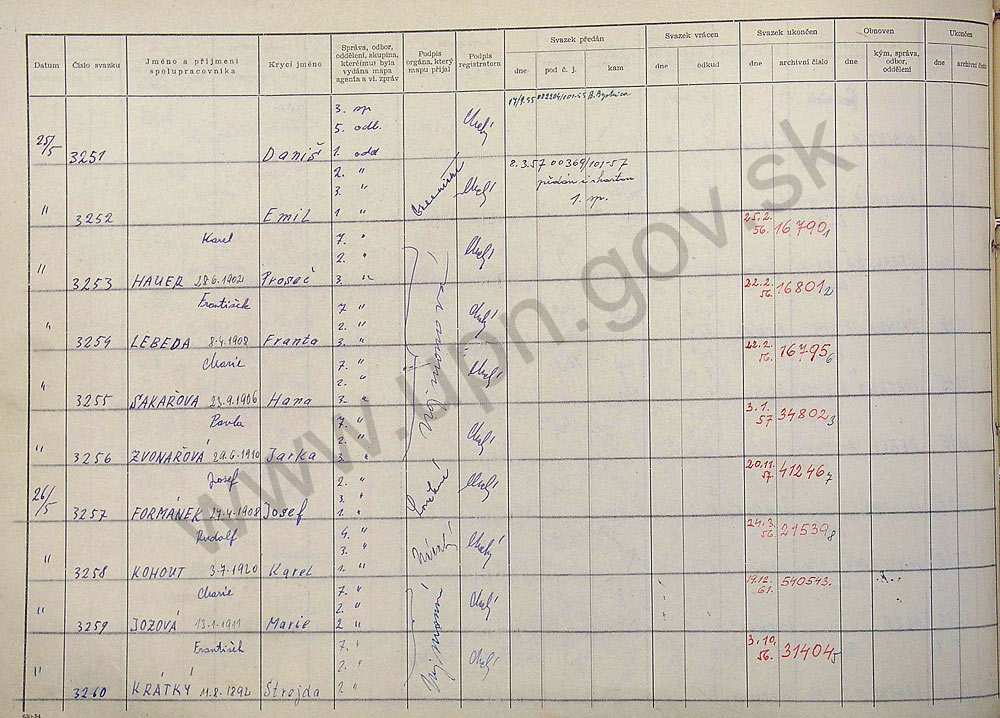 Datum
Číslo svazku
Jméno a příjmení spolupracovníka
Krycí jméno
Správa, odbor, oddělení, skupina, které(mu) byla vydána mapa agenta a vl. zpráv
Podpis orgána, který mapu přijal
Podpis registratora
Svazek předán
dne
pod č. j.
kam
Svazek vrácen
dne
odkud
Svazek ukončen
dne
archivní číslo
Obnoven
dne
kým, správa, odbor, oddělení
Ukončen
dne
archivní číslo
3. sp
5. odb.
25/5 3251 Daniš 1. odd
2. "
3. " 8.3.57 00369/101-57
předán i s kartou
1. sp.
" 3252 Emil 1 "
Karel 7. " 25.2. 56. 16790 1
2. "
" 3253 HAUER 28.6.1902 Proseč 3. " 22.2. 56. 16801 2
František 7 "
2. "
" 3254 LEBEDA 8.4.1908 Franta 3. " 22.2. 56. 16795 6
Marie 7. "
2. "
" 3255 SAKAŘOVÁ 23.9.1906 Hana 3. " 3.1. 57 34802 3
Pavla 7. "
2. "
" 3256 ZVONAŘOVÁ 29.6.1910 Jarka 3. " 20.11. 57. 41246 7
Josef 2. "
3. "
26/5 3257 FORMÁNEK 24.4.1908 Josef 1. " 24.3. 56. 21539 8
Rudolf 4. "
3. "
" 3258 KOHOUT 3.7.1920 Karel 1. " 19.12. 61. 540543.
Marie 7. "
2. "
" 3259 JOZOVÁ 13.1.1911 Marie 2. " 3.10. 56. 31404 5
František 7. "
2. "
" 3260 KRÁTKÝ 11.8.1892 Strojda 2. "
www.upn.gov.sk